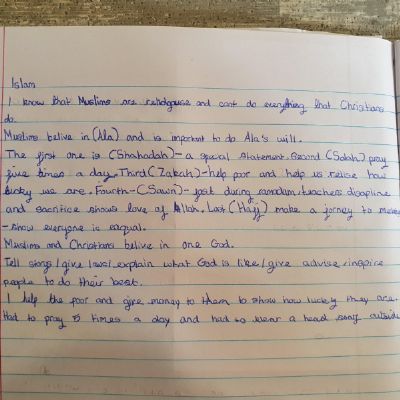 Islam
I know that Muslims are reledgouse and cant do everything that Christians
do.
Muslims belive in (Ala) and is important to do Ala's will.
The first one is (Shahadah) - a special statement. Second (Salah) pray
five times a day. Third (Zakah) - help poor and help us relise how
lucky we are. Fourth - (Sawm) - fast during ramadam, teachers disapline
and sacrifice shows love of Allah. Last (Hajj) make a jorney to
- show everyone is eaqual.
Muslims and Christians belive in one God.
Tell storys / give laws, explain what God is like / give advise, inspire
people to do their best.
I help the poor and give money to them to show how lucky they are.
Had to pray 5 times a day and had to wear a head outside